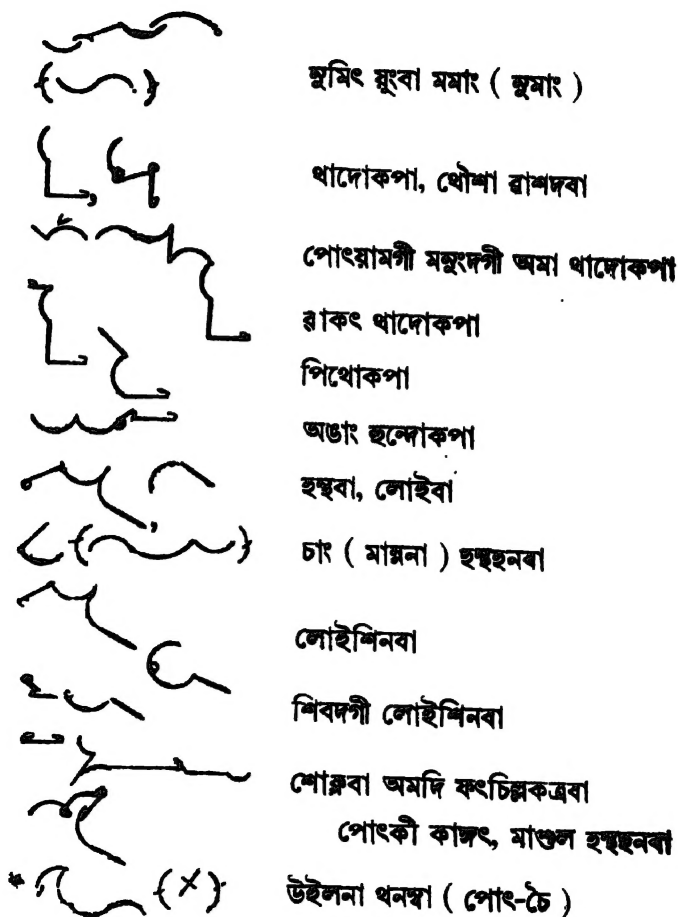 নুমিৎ য়ুংবা মমাং ( নুমাং )
থাদোকপা, থৌশা ৱাশদবা
পোৎয়ামগী মনুংদগী অমা থাদোকপা
ৱাকৎ থাদোকপা
পিথোকপা
অঙাং হুন্দোকপা
হন্থবা, লোইবা
চাং ( মান্ননা ) হন্থহনবা
লোইশিনবা
শিবদগী লোইশিনবা
শোক্লবা অমদি ফংচিল্লকত্রবা
পোৎকী কাঙ্গৎ, মাশুল হন্থহনবা
উইলনা থনম্বা ( পোৎ-চৈ )